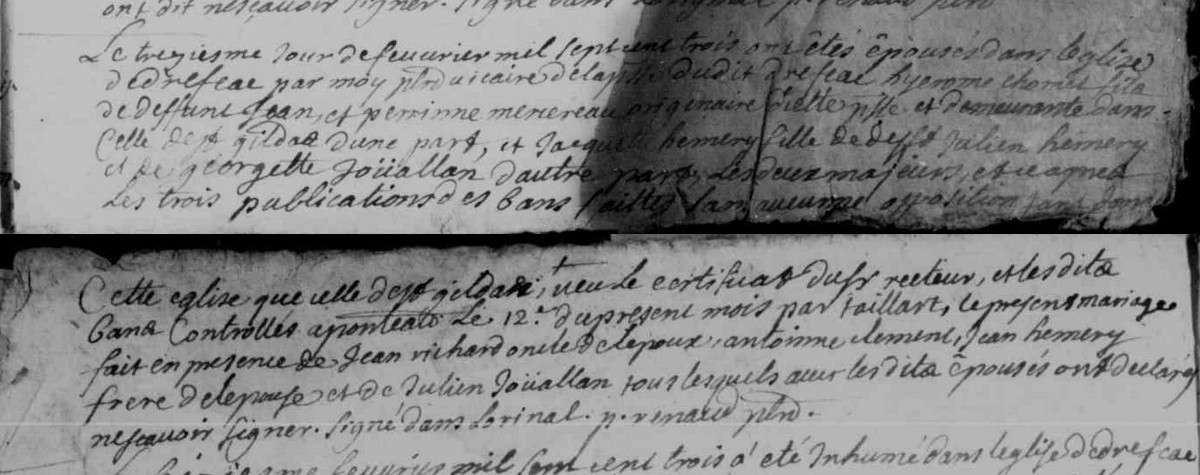 ont dit nesçavoir signer. signé dans
Le treziesme Jour defeuvrier mil sept cent trois ont êtés êpousés dans leglise
dedrefeac par moy vicaire delad dudit drefeac hyerome filz
dedeffunt Jean, et perrinne mercereau originaire d'icelle et demeurante dans
Celle de st gildas dune part, et Jacquette hemery fille de defft Julien hemery
et de georgette Joüallan dautre part, Lesdeux majeurs, et cy apres
Les trois publications des bans faittes sans aucunne opposition tant dans
Cette eglise que celle dest gildas, veu Le certificat dusr recteur, et lesdits
bans Controllés apontcato Le 12.e dupresent mois par taillart, le present mariage
fait en presence de Jean richard oncle delepoux, antoinne clement, Jean hemery
frere delepouse et de Julien Joüallan tous lesquels avec lesdits êpousés ont declarés
nescavoir signer. signé dans Lorinal. p. renaud
feuvrier mil sept cent trois a été Inhumé dans leglise dedrefeac